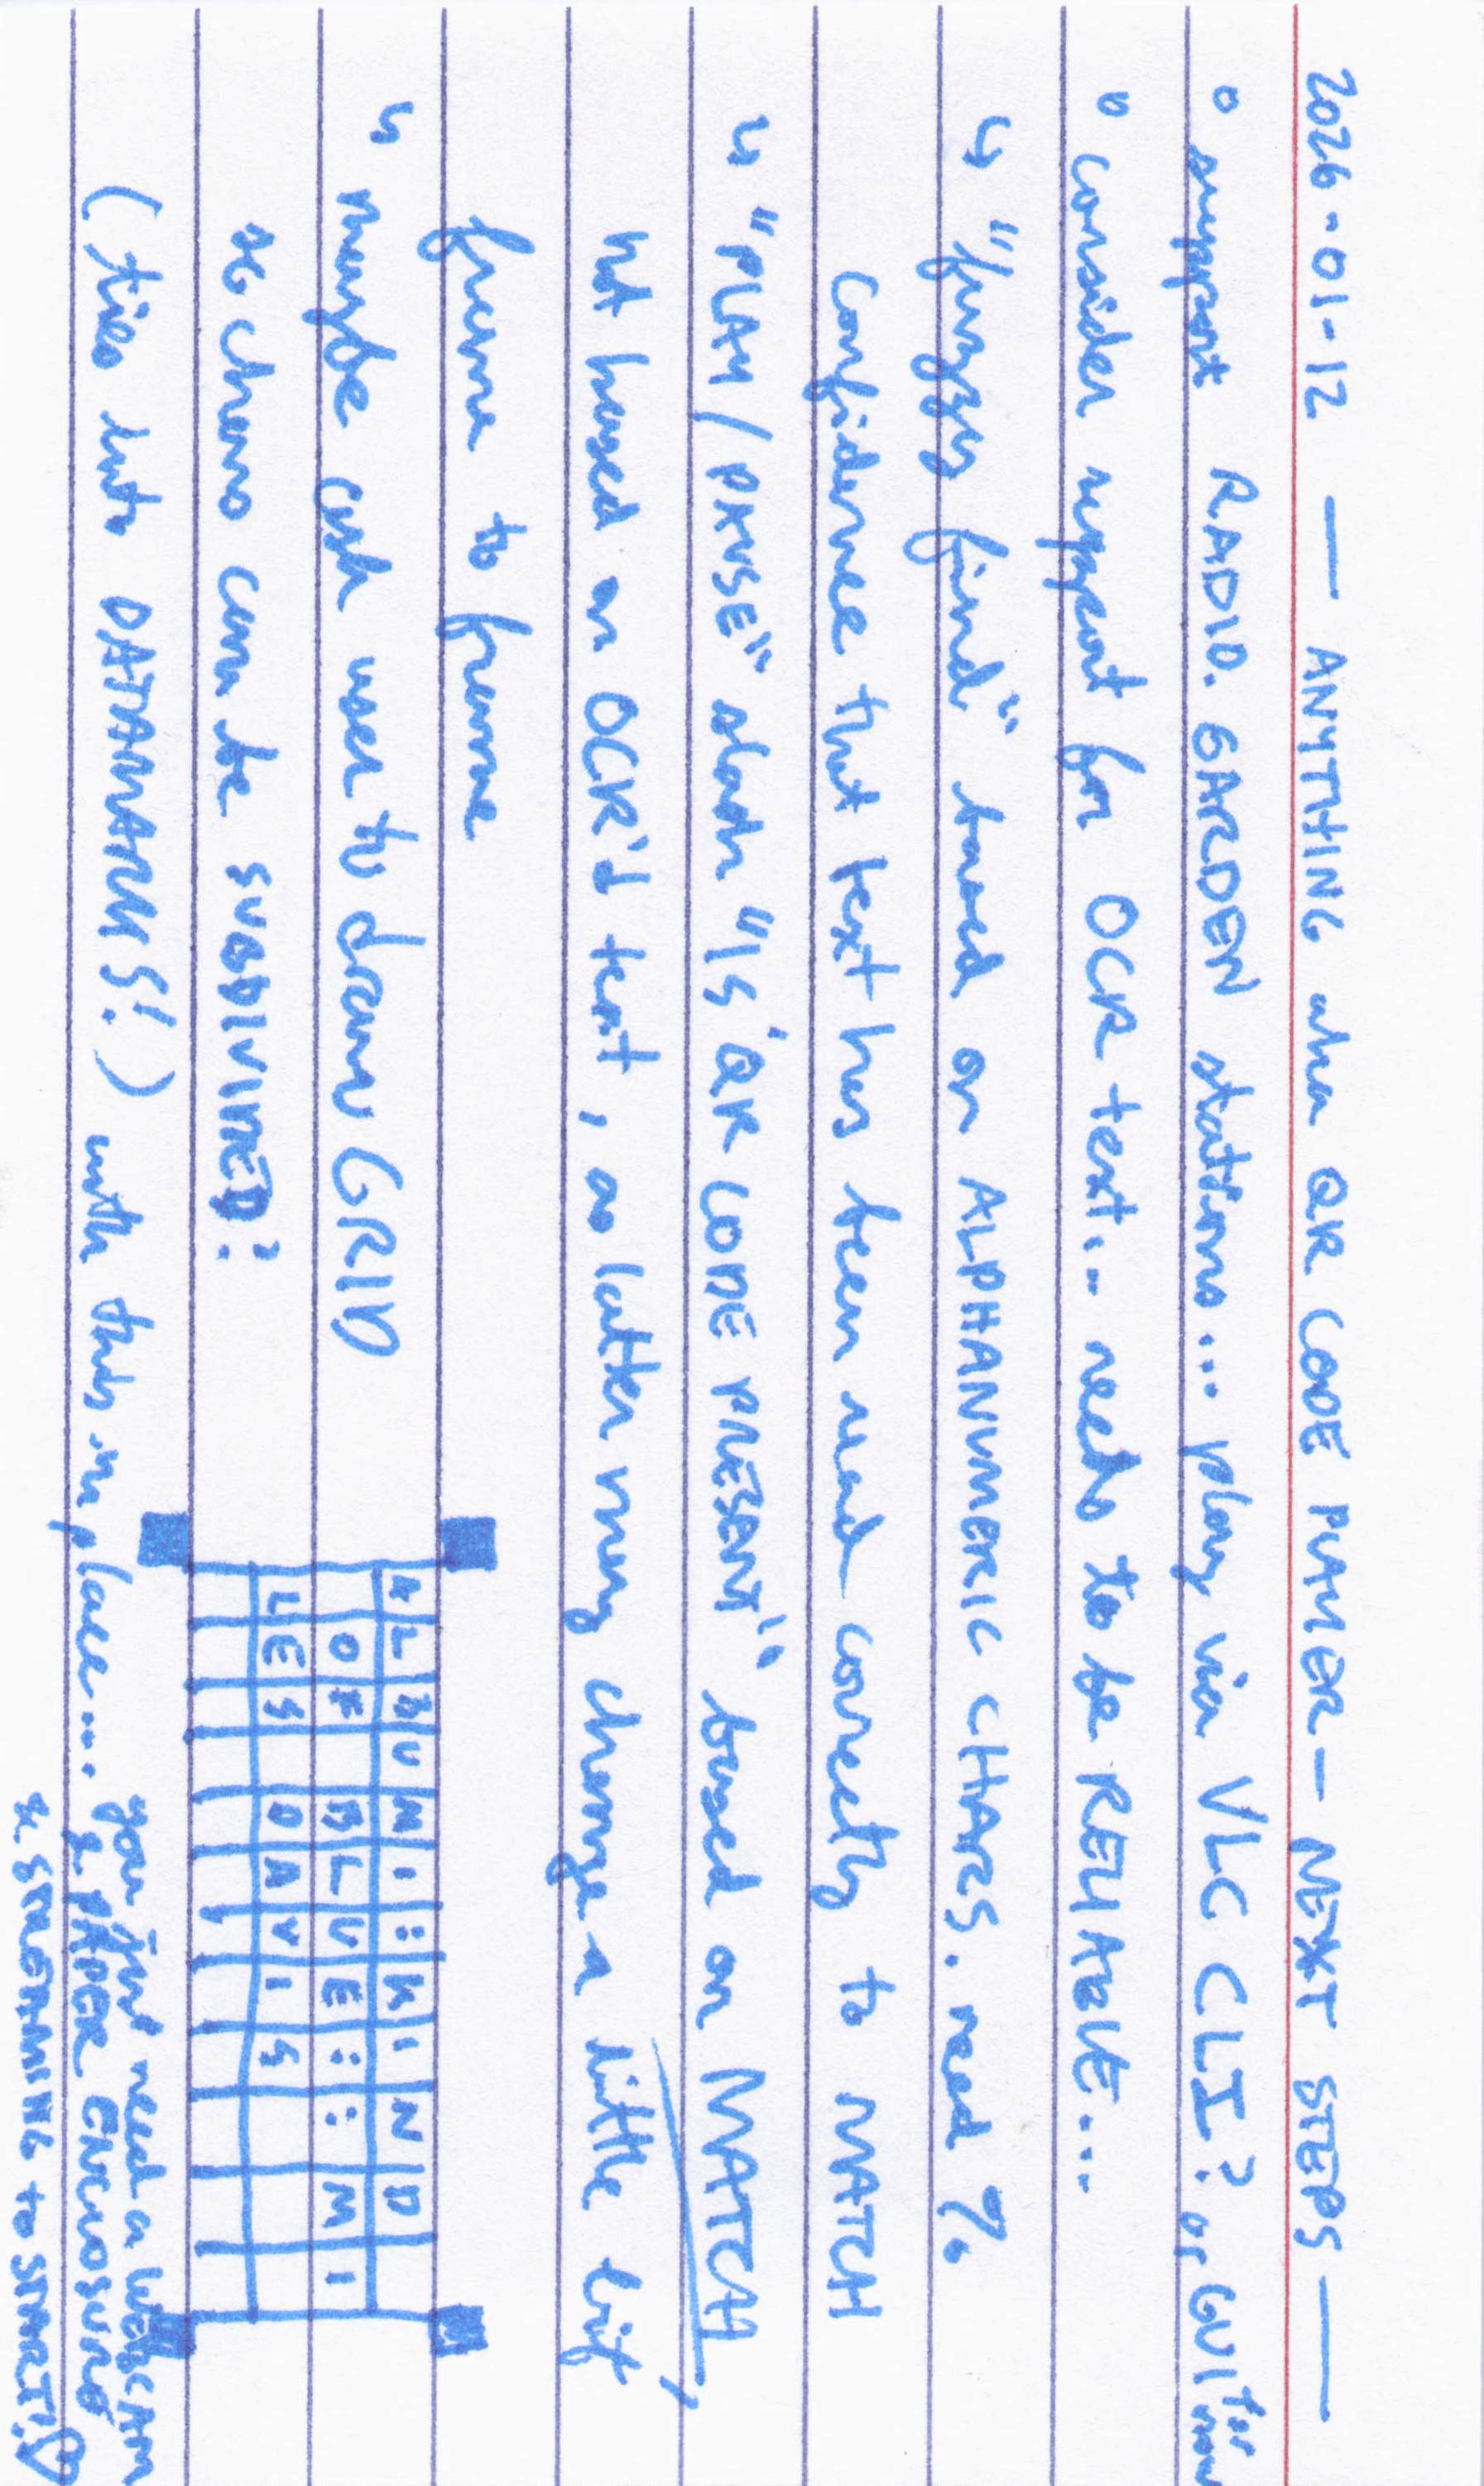 2026-01-12 — ANYTHING aka QR CODE PLAYER — NEXT STEPS —
o support RADIO.GARDEN stations... play via VLC CLI? or GUI for now
o consider support for OCR text... needs to be RELIABLE...
↳ "fuzzy find" based on ALPHANUMERIC CHARS. need %
confidence that text has been read correctly to MATCH
↳ "PLAY/PAUSE" state "IS QR CODE PRESENT" based on MATCH,
not based on OCR'd text, as latter may change a little bit
frame to frame
↳ maybe ask user to draw GRID
so chars can be SUBDIVIDED?
(ties into DATAMARKS!) with this in place... you just need a WEBCAM
& PAPER ENCLOSURE
& STREAMING to START! ♡
ALBUM: KIND
OF BLUE: MI
LES DAVIS